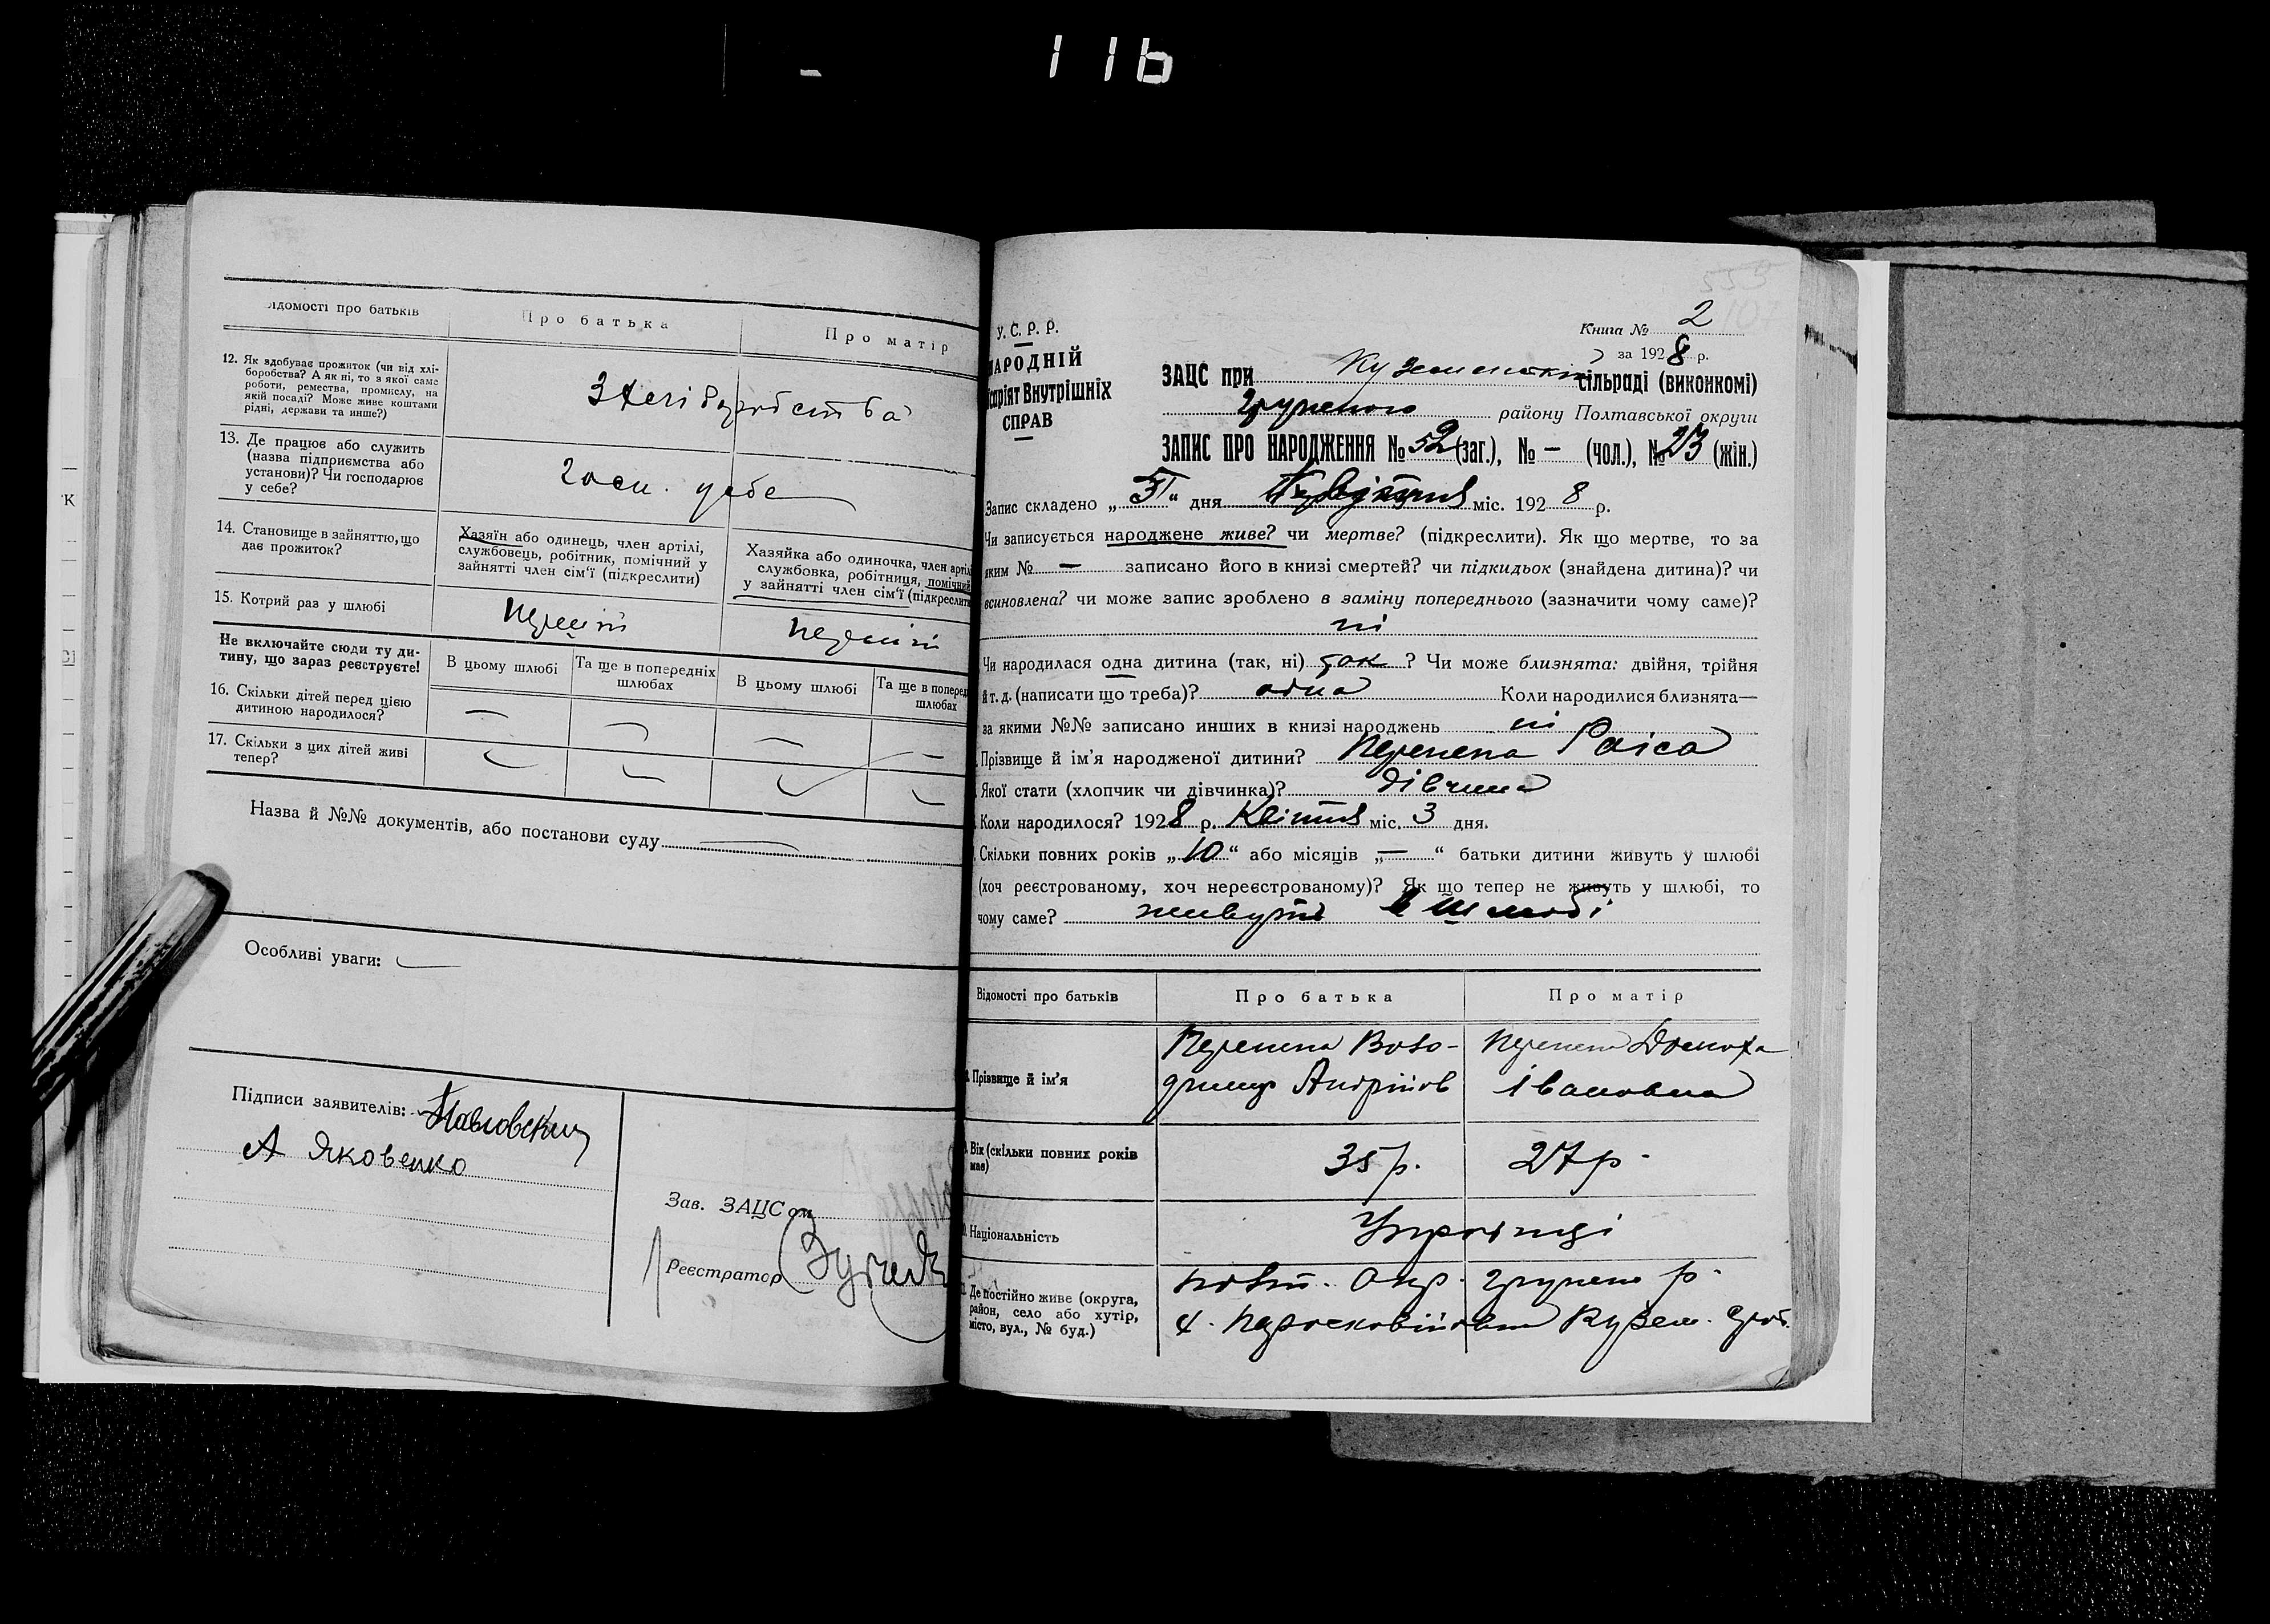 116
ідомості про батьків
Про батька
Про матір
12. Як здобуває прожиток (чи від хлі-
боробства? А як ні, то з якої саме
роботи, ремества, промислу, на
якій посаді? Може живе коштами
рідні, держави та инше?)
З хліборобства
13. Де працює або служить
(назва підприємства або
установи)? Чи господарює
у себе?
Госп. у себе
14. Становище в зайняттю, що
дає прожиток?
Хазяїн або одинець, член артілі,
службовець, робітник, помічний у
зайнятті член сім'ї (підкреслити)
Хазяйка або одиночка, член артіл
службовка, робітниця, помічний
у зайнятті член сім'ї (підкреслити
15. Котрий раз у шлюбі
перший
перший
Не включайте сюди ту ди-
тину, що зараз реєструєте!
В цьому шлюбі
Та ще в попередніх
шлюбах
В цьому шлюбі
Та ще в поперед
шлюбах
16. Скільки дітей перед цією
дитиною народилося?
— — — —
17. Скільки з цих дітей живі
тепер?
Назва й №№ документів, або постанови суду —
Особливі уваги: —
Підписи заявителів: Павловский
А Яковенко
Зав. ЗАЦС ом
Реєстратор
У. С. Р. Р.
АРОДНІЙ
саріят Внутрішніх
СПРАВ
Книга № 2
за 1928 р.
ЗАЦС при Куземенській сільраді (виконкомі)
Грунського району Полтавської округи
ЗАПИС ПРО НАРОДЖЕННЯ № 52 (заг.), № — (чол.), № 23 (жін.)
Запис складено „ “ дня міс. 1928 р.
Чи записується народжене живе? чи мертве? (підкреслити). Як що мертве, то за
яким № — записано його в книзі смертей? чи підкидьок (знайдена дитина)? чи
всиновлена? чи може запис зроблено в заміну попереднього (зазначити чому саме)?
ні
Чи народилася одна дитина (так, ні) так ? Чи може близнята: двійня, трійня
й т. д. (написати що треба)? одна Коли народилися близнята—
за якими №№ записано инших в книзі народжень ні
Прізвище й ім'я народженої дитини? Перепела Раіса
Якої стати (хлопчик чи дівчинка)? дівчина
Коли народилося? 1928 р. Квітня міс. 3 дня.
Скільки повних років „10“ або місяців „—“ батьки дитини живуть у шлюбі
(хоч реєстрованому, хоч нереєстрованому)? Як що тепер не живуть у шлюбі, то
чому саме? живуть в шлюбі
Відомості про батьків
Про батька
Про матір
Прізвище й ім'я
Перепела Воло-
димир Андрійов
Перепела Домаха
Івановна
Вік (скільки повних років
має)
35 р.
27 р.
Національність
Українці
Де постійно живе (округа,
район, село або хутір,
місто, вул., № буд.)
Полт. Окр. Грунськ р.
х. Парасковіївка Кузем. сільр.